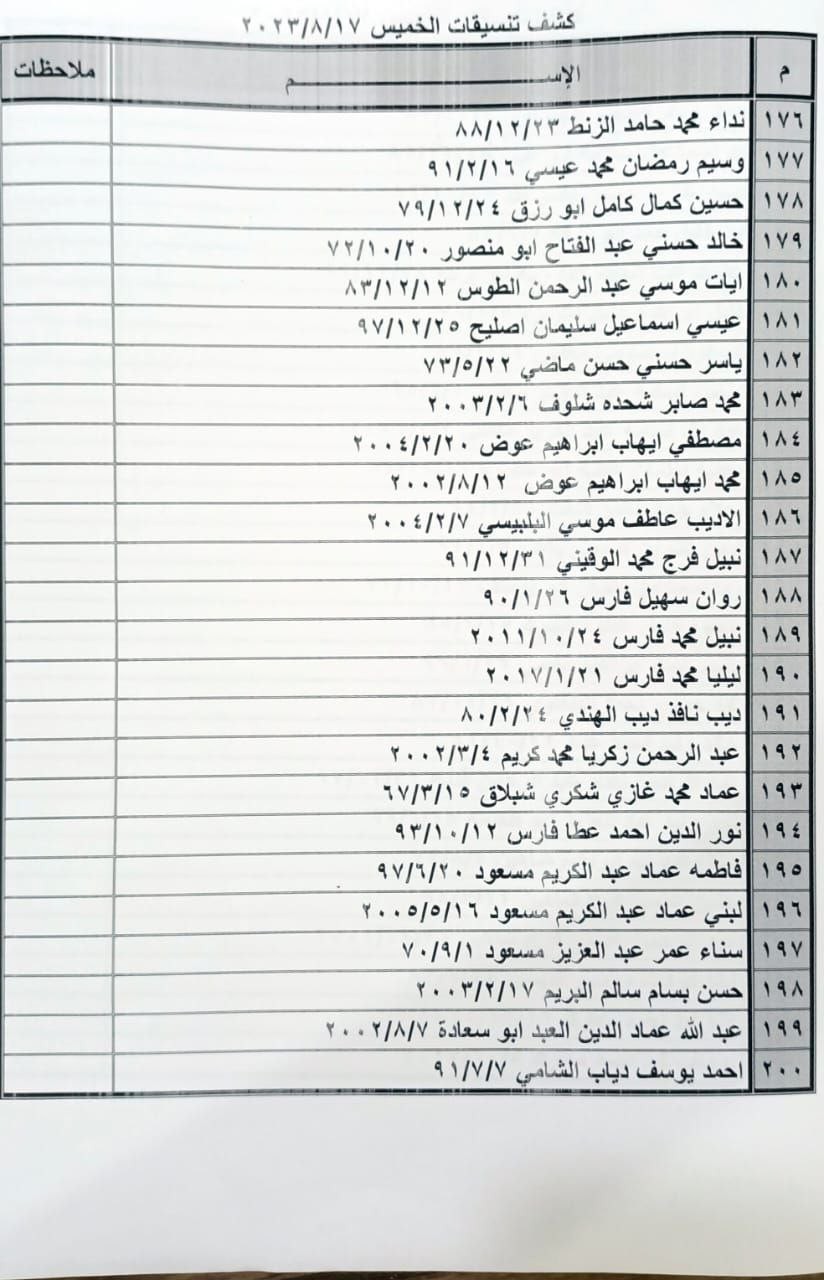 كشف تنسيقات الخميس ٢٠٢٣/٨/١٧
م الإســـــــــم ملاحظات
١٧٦ نداء محمد حامد الزنط ٨٨/١٢/٢٣
١٧٧ وسيم رمضان محمد عيسي ٩١/٢/١٦
١٧٨ حسين كمال كامل ابو رزق ٧٩/١٢/٢٤
١٧٩ خالد حسني عبد الفتاح ابو منصور ٧٢/١٠/٢٠
١٨٠ ايات موسي عبد الرحمن الطوس ٨٣/١٢/١٢
١٨١ عيسي اسماعيل سليمان اصليح ٩٧/١٢/٢٥
١٨٢ ياسر حسني حسن ماضي ٧٣/٥/٢٢
١٨٣ محمد صابر شحده شلوف ٢٠٠٣/٢/٦
١٨٤ مصطفي ايهاب ابراهيم عوض ٢٠٠٤/٢/٢٠
١٨٥ محمد ايهاب ابراهيم عوض ٢٠٠٢/٨/١٢
١٨٦ الاديب عاطف موسي البلبيسي ٢٠٠٤/٢/٧
١٨٧ نبيل فرج محمد الوقيني ٩١/١٢/٣١
١٨٨ روان سهيل فارس ٩٠/١/٢٦
١٨٩ نبيل محمد فارس ٢٠١١/١٠/٢٤
١٩٠ ليليا محمد فارس ٢٠١٧/١/٢١
١٩١ ديب نافذ ديب الهندي ٨٠/٢/٢٤
١٩٢ عبد الرحمن زكريا محمد كريم ٢٠٠٢/٣/٤
١٩٣ عماد محمد غازي شكري شبلاق ٦٧/٣/١٥
١٩٤ نور الدين احمد عطا فارس ٩٣/١٠/١٢
١٩٥ فاطمه عماد عبد الكريم مسعود ٩٧/٦/٢٠
١٩٦ لبني عماد عبد الكريم مسعود ٢٠٠٥/٥/١٦
١٩٧ سناء عمر عبد العزيز مسعود ٧٠/٩/١
١٩٨ حسن بسام سالم البريم ٢٠٠٣/٢/١٧
١٩٩ عبد الله عماد الدين العبد ابو سعادة ٢٠٠٢/٨/٧
٢٠٠ احمد يوسف دياب الشامي ٩١/٧/٧